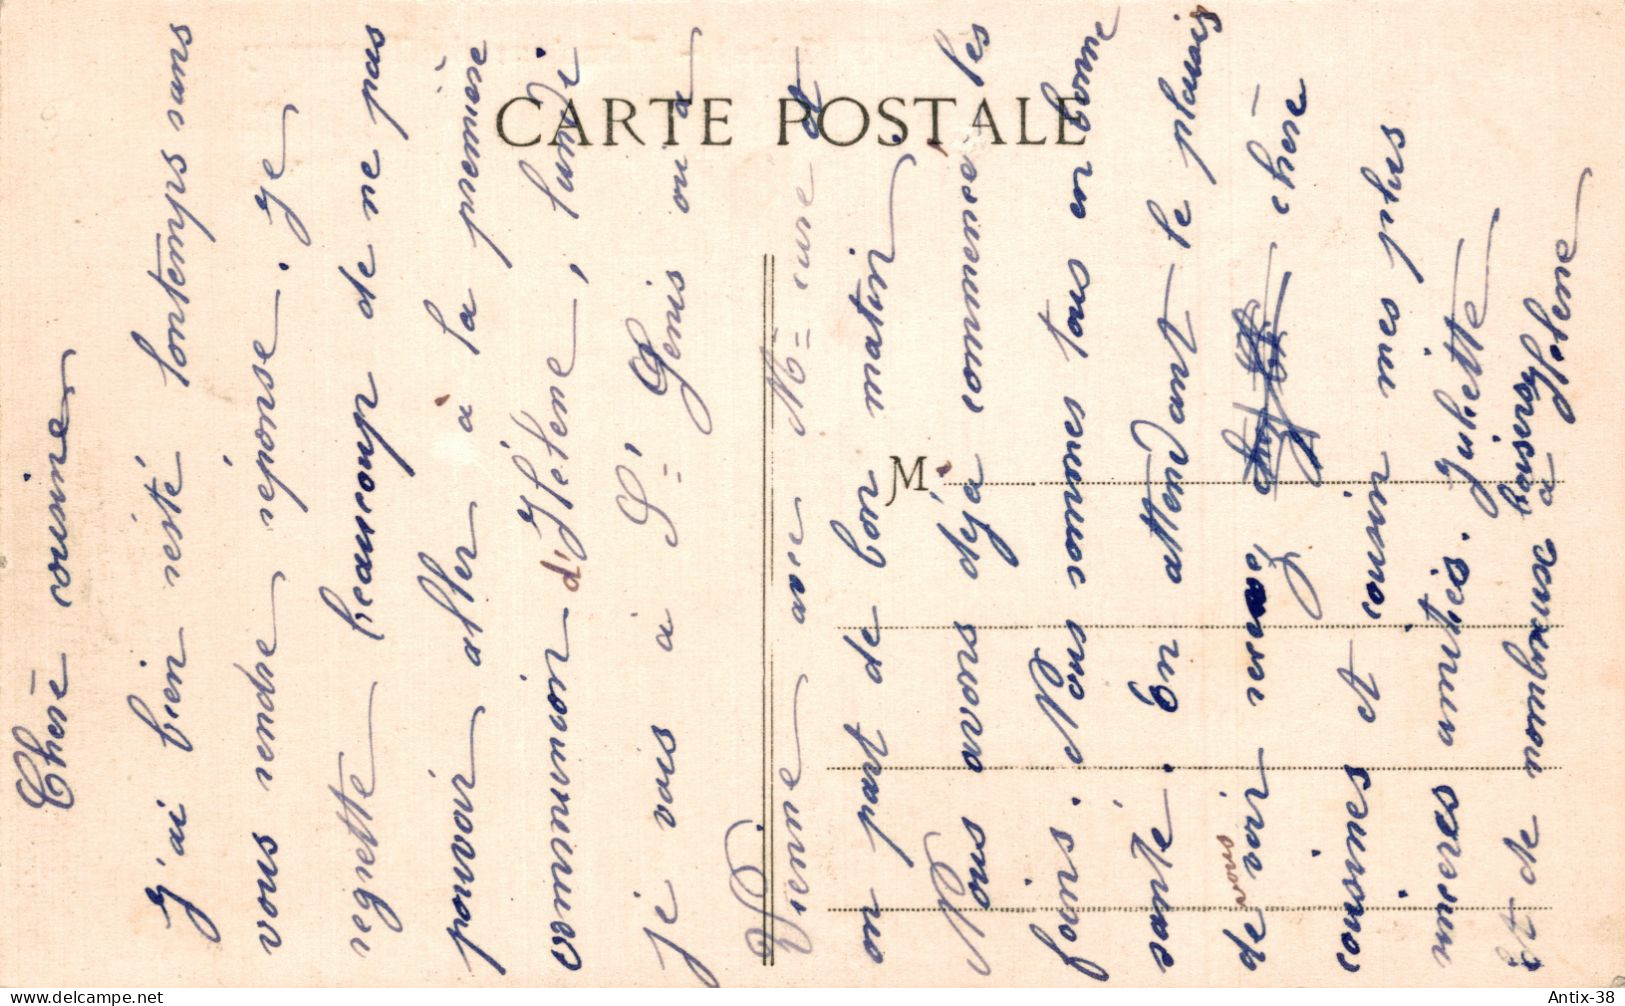 CARTE POSTALE
M
Chère cousine
J'ai bien resté lontemps sans
vous rendre réponse. Je
regrette beaucoup de ne pas
pouvoir aller à la première
communion d'Hélène, lundi
je vais à St Genis on a
Vienne avec Mr curé &
on part de bon matin
Nous avons déja commencé les
foins. Nous sommes tous en bonne
santé. En attendant le plaisir
de vous voir recevez chère
cousines et cousin mes plus
sincères amitiés. Juliette
et de nombreux baisers a Hélène
Antix-38